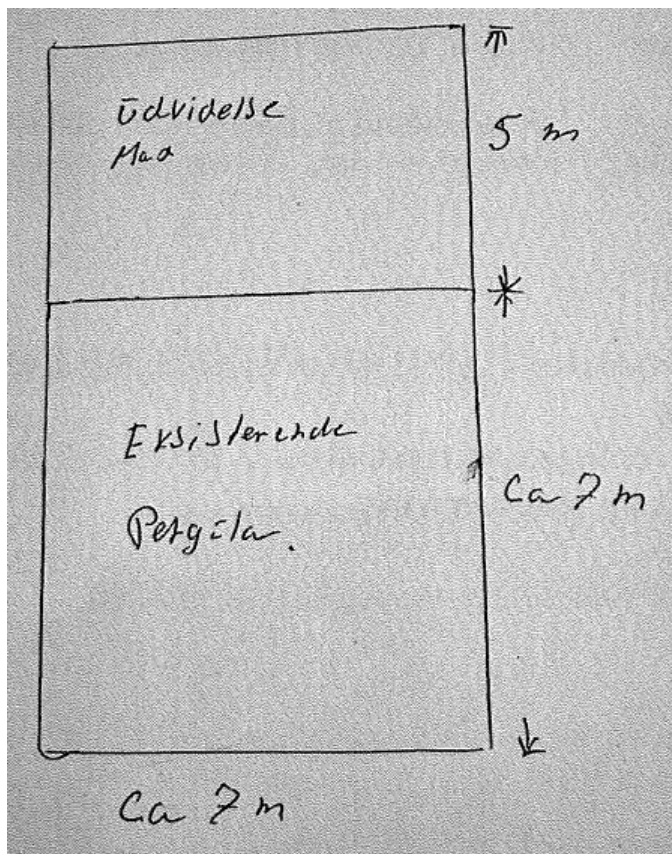 Udvidelse
5 m
Eksisterende
Pergula.
Ca 7 m
Ca 7 m